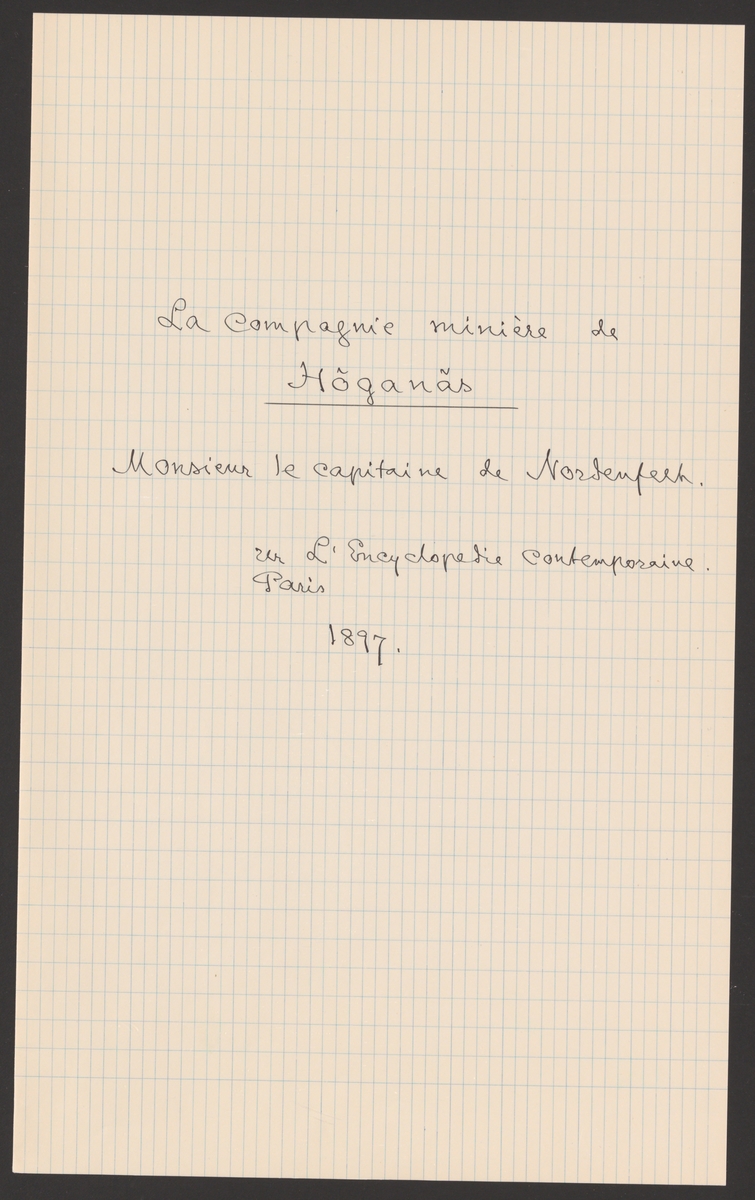 La Compagnie minière de
Höganäs
Monsieur le capitaine de Nordenfelt.
ur L'Encyclopedie Contemporaine.
Paris
1897.